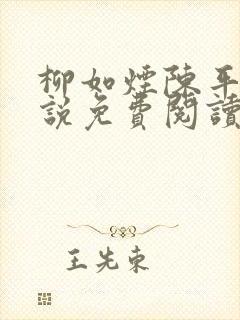 柳如煙陳平
說免費閱讀
王先東